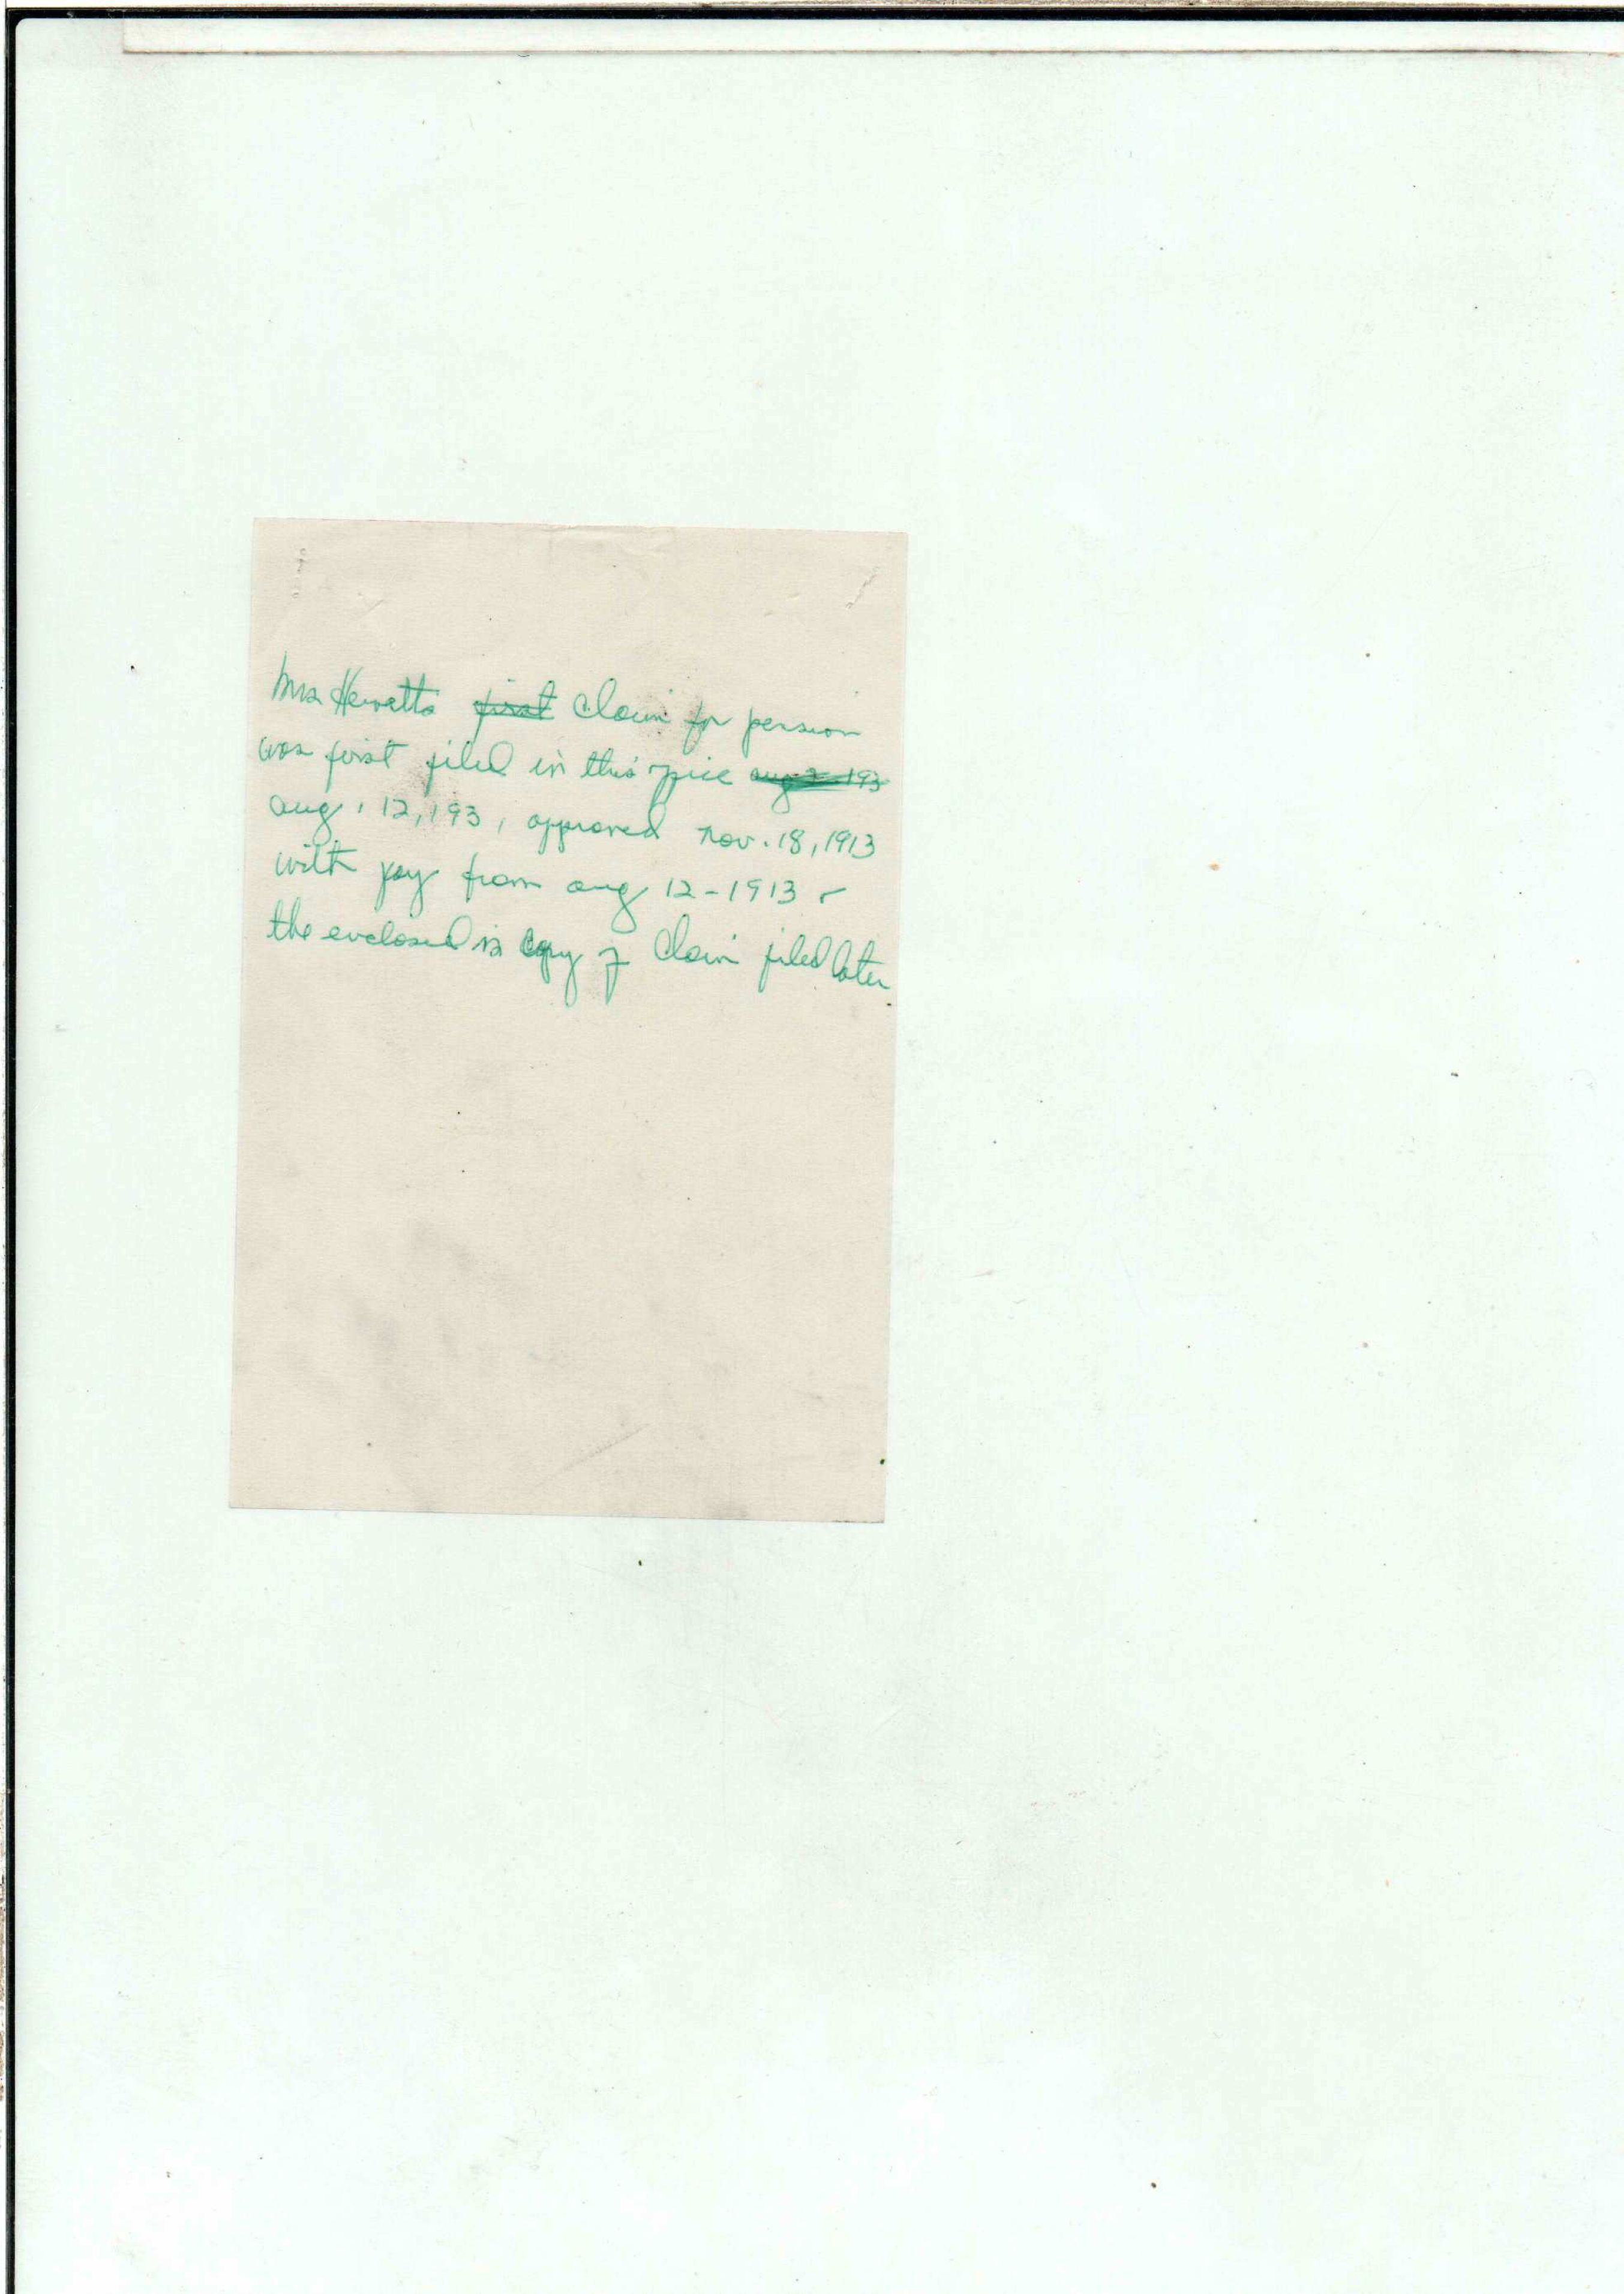 Mrs Hewetts first Claim for pension
was first filed in this office aug 2 193
aug, 12, 193, approved nov. 18, 1913
with pay from aug 12 - 1913 -
the enclosed is copy of Claim filed later